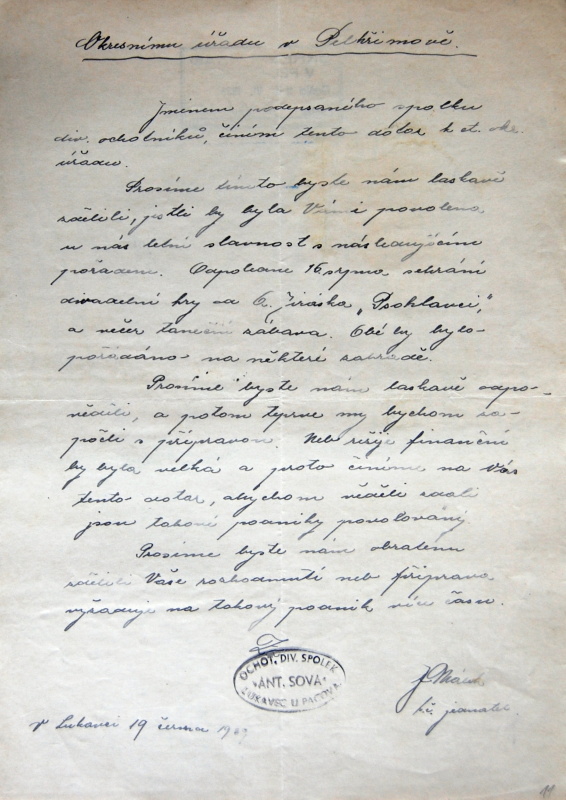 Okresnímu úřadu v Pelhřimově.
Jménem podepsaného spolku
div. ochotníků, činím tento dotaz k ct. okr.
úřadu.
Prosíme tímto byste nám laskavě
sdělili, jestli by byla Vámi povolena,
u nás letní slavnost s následujícím
pořadem. Odpoledne 16. srpna sehrání
divadelní hry od A. Jiráska „Psohlavci",
a večer taneční zábava. Obé by bylo
pořádáno na některé zahradě.
Prosíme byste nám laskavě odpo-
věděli, a potom teprve my bychom za-
počli s přípravou. Neb režije finanční
by byla velká a proto činíme na Vás
tento dotaz, abychom věděli zdali
jsou takové podniky povolovány.
Prosíme byste nám obratem
sdělili Vaše rozhodnutí neb příprava
vyžaduje na takový podnik více času.
OCHOT. DIV. SPOLEK
"ANT. SOVA"
LUKAVEC U PACOVA
J.
t.č. jednatel
v Lukavci 19 června
11